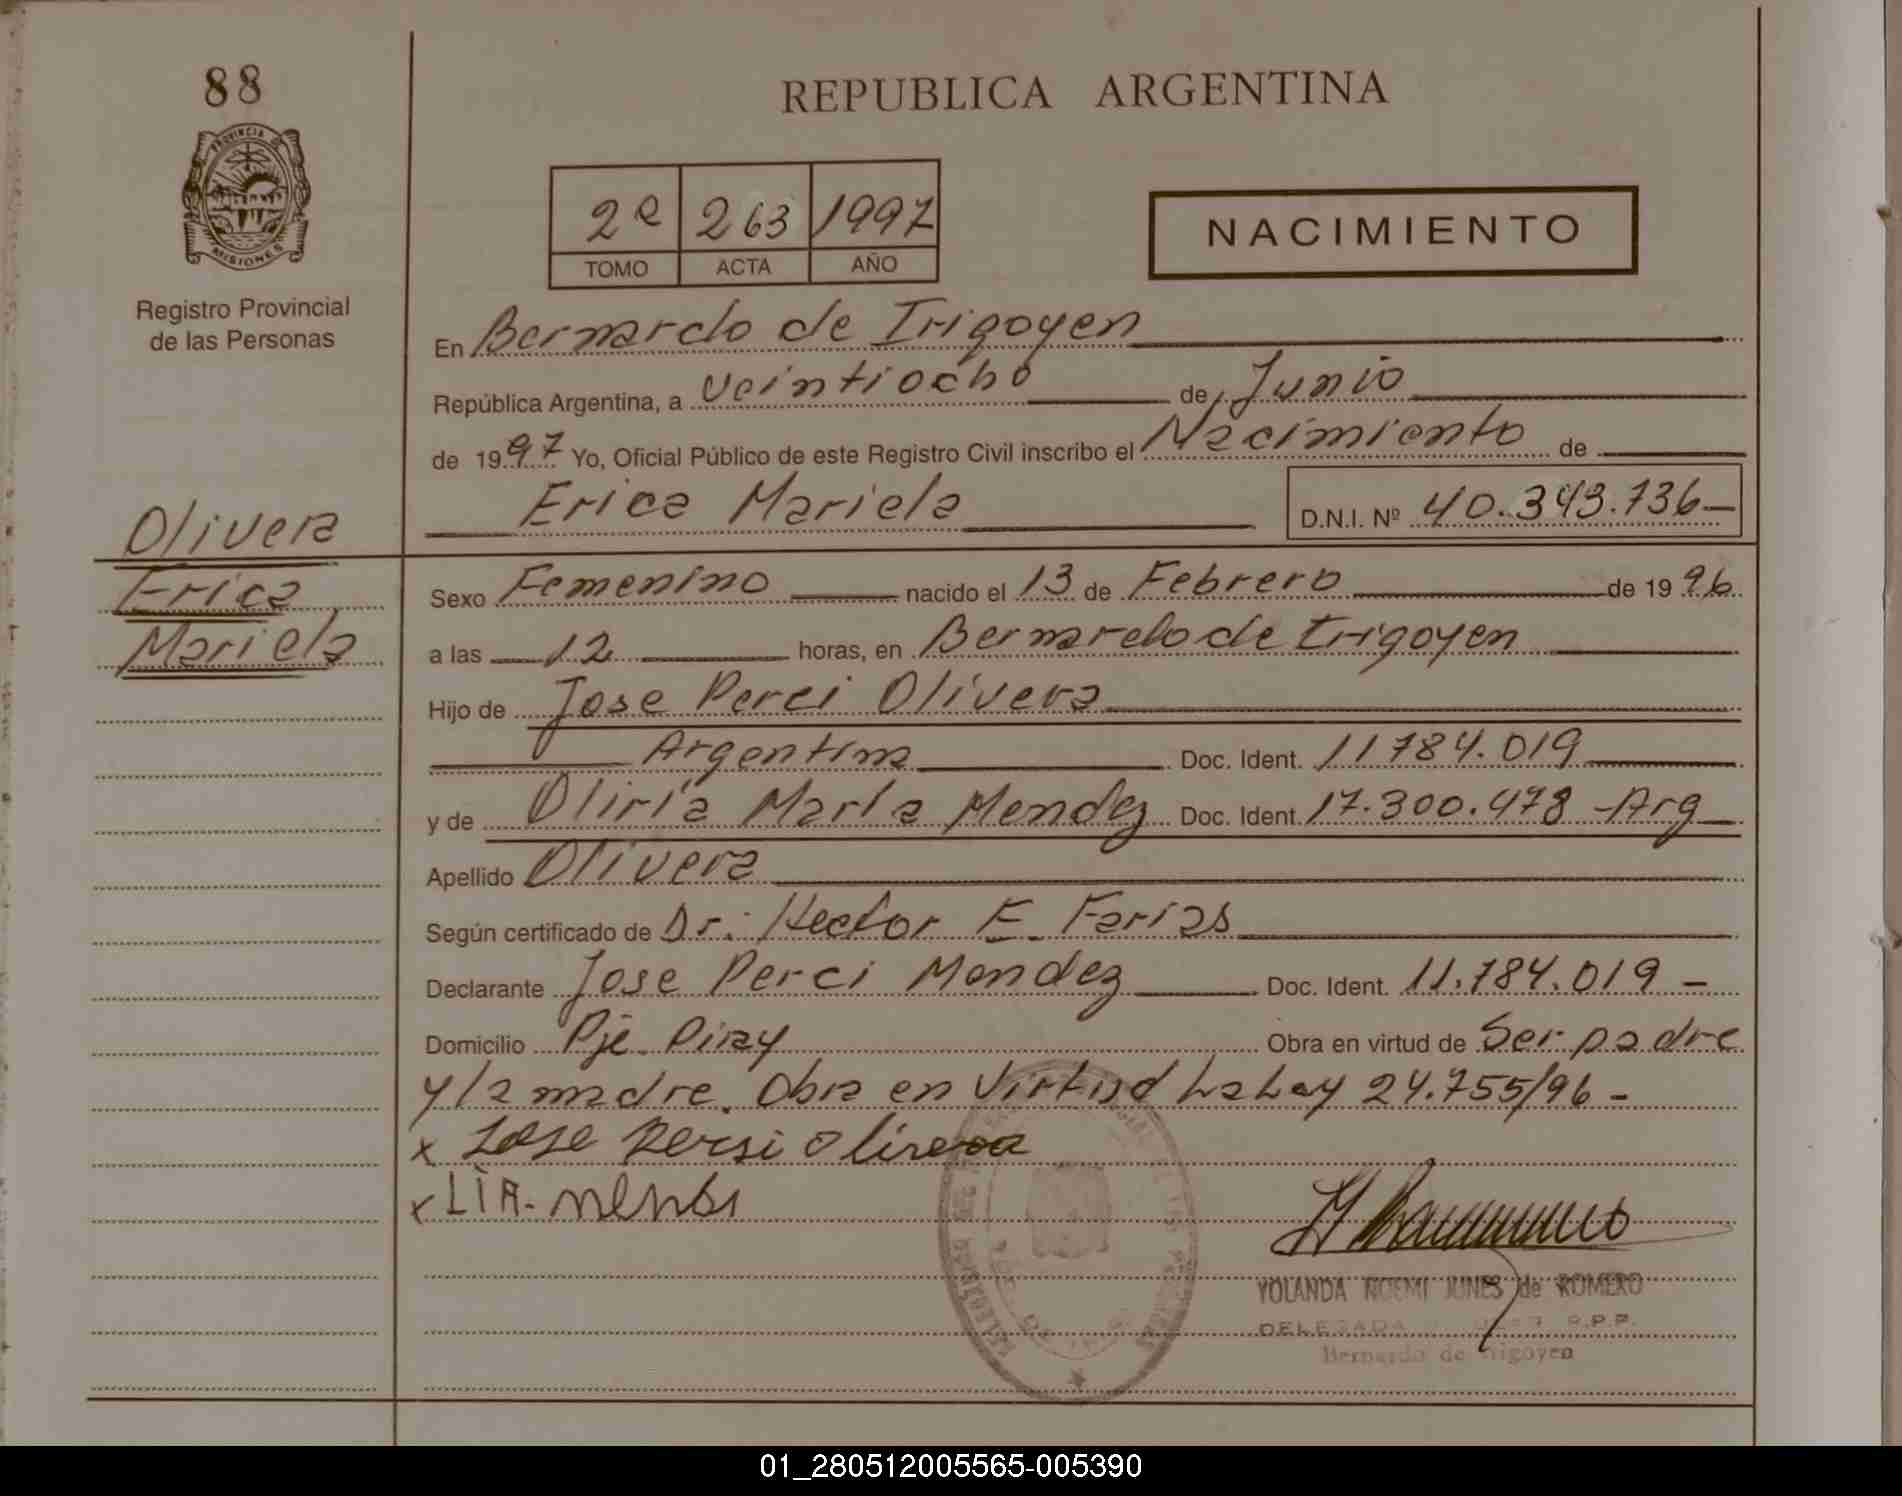 88
PROVINCIA DE
MISIONES
Registro Provincial
de las Personas
REPUBLICA ARGENTINA
2º 263 1997
TOMO ACTA AÑO
NACIMIENTO
En Bernardo de Irigoyen
República Argentina, a veintiocho de Junio
de 1997 Yo, Oficial Público de este Registro Civil inscribo el Nacimiento de
Erica Mariela D.N.I. Nº 40.343.736-
Olivera
Erica
Mariela
Sexo Femenino nacido el 13 de Febrero de 1996
a las 12 horas, en Bernardo de Irigoyen
Hijo de Jose Perci Olivera
Argentina Doc. Ident. 11784.019
y de Oliria Maria Mendez Doc. Ident. 17.300.478 -Arg
Apellido Olivera
Según certificado de Dr. Hector E. Farias
Declarante Jose Perci Mendez Doc. Ident. 11.784.019 -
Domicilio Pje. Piray Obra en virtud de Ser padre
y la madre. Obra en Virtud La Ley 24.755/96 -
x Jose Persi Olivera
x LIA-
YOLANDA NOEMI JUNES de ROMERO
DELEGADA R.P.P.
Bernardo de Irigoyen
01_280512005565-005390